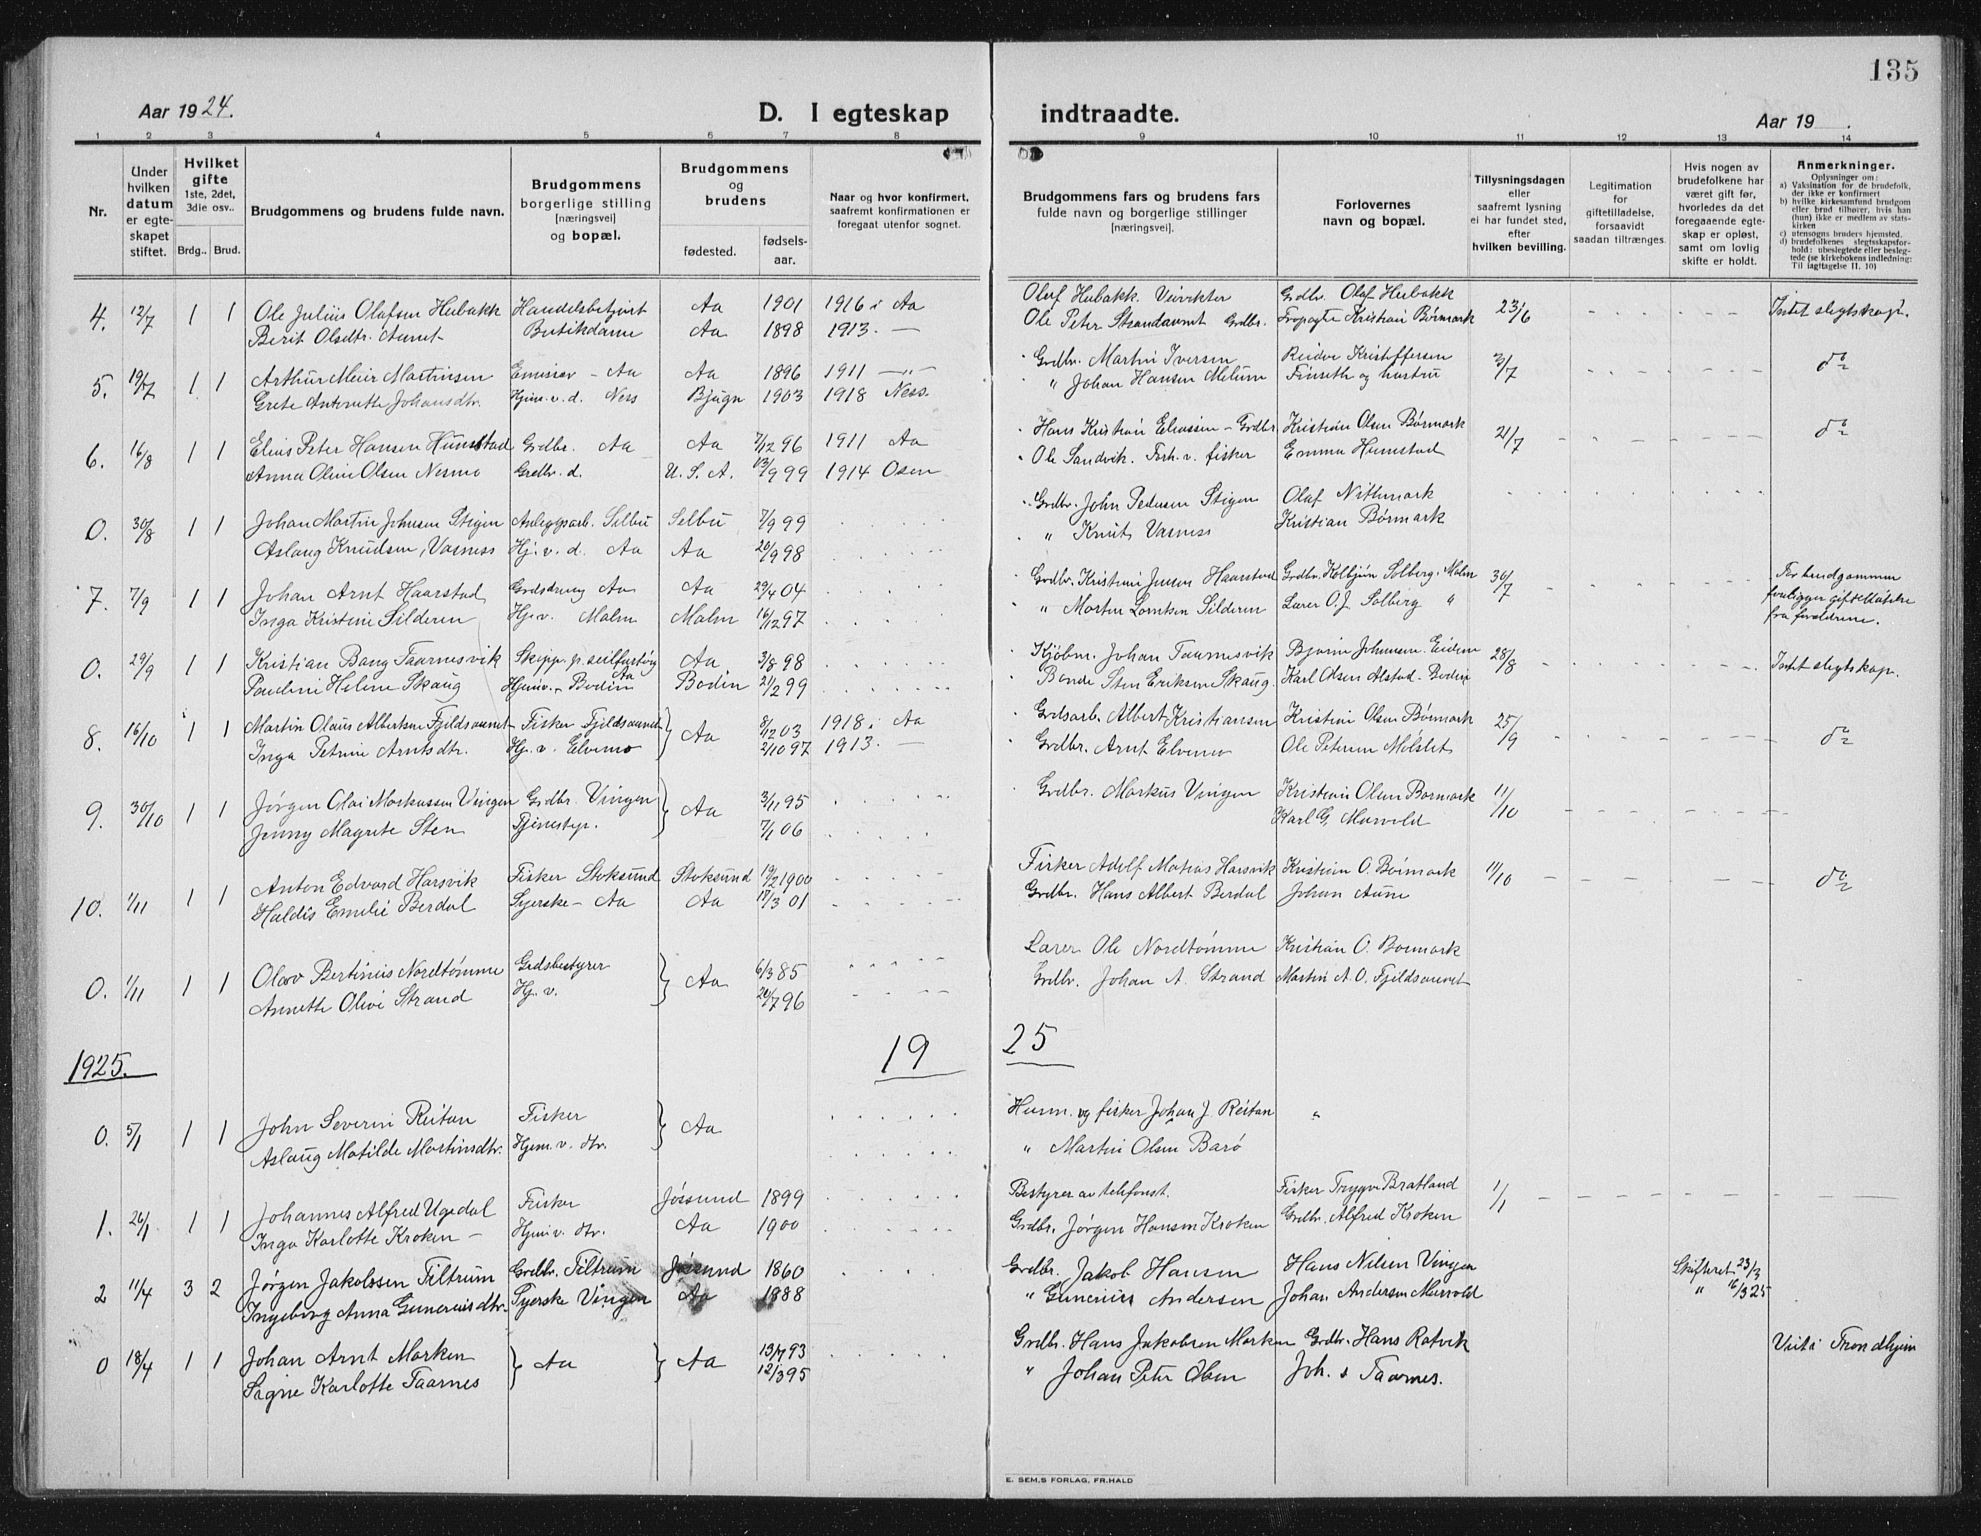 135
Aar 1924.
D. I egteskap indtraadte.
Aar 19 .
1 2 3 4 5 6 7 8 9 10 11 12 13 14
Nr.
Under hvilken datum er egte-skapet stiftet.
Hvilket gifte 1ste, 2det, 3die osv..
Brdg.. Brud.
Brudgommens og brudens fulde navn.
Brudgommens borgerlige stilling [næringsvei] og bopæl.
Brudgommens og brudens
fødested. fødsels-aar.
Naar og hvor konfirmert, saafremt konfirmationen er foregaat utenfor sognet.
Brudgommens fars og brudens fars fulde navn og borgerlige stillinger [næringsvei].
Forlovernes navn og bopæl.
Tillysningsdagen eller saafremt lysning ei har fundet sted, efter hvilken bevilling.
Legitimation for giftetilladelse, forsaavidt saadan tiltrænges.
Hvis nogen av brudefolkene har været gift før, hvorledes da det foregaaende egte-skap er opløst, samt om lovlig skifte er holdt.
Anmerkninger.
Oplysninger om:
a) Vaksination for de brudefolk, der ikke er konfirmert
b) hvilke kirkesamfund brudgom eller brud tilhører, hvis han (hun) ikke er medlem av stats-kirken
c) utensogns bruders hjemsted.
d) brudefolkenes slegtsskapsfor-hold: ubeslegtede eller besleg-tede (se kirkebokens indledning: Til iagttagelse II. 10)
4. 12/7 1 1 Ole Julius Olafsen Hubakk Handelsbetjent Aa 1901 1916 i Aa Olaf Hubakk. Grdbr. Olaf Hubakk 23/6 Intet slegtskap.
Berit Olsdtr. Aunet Butikdame Aa 1898 1913. — Ole Peter Strandaunet Grdbr. Kristian Børmark
5. 19/7 1 1 Arthur Meier Martinsen Emissær - Aa Aa 1896 1911 —"— Grdbr. Martin Iversen Reidar Kristoffersen 3/7 do
Grete Antonette Johansdtr. Hjem. v. d. Ness Bjugn 1903 1918 Ness. " Johan Hansen Melum Finseth og hustru
6. 16/8 1 1 Elias Peter Hansen Humstad Grdbr. Aa Aa 7/12 96 1911 Aa Hans Kristian Eliassen - Grdbr. Kristian Olsen Børmark 21/7 do
Anna Oline Olsen Nesmo Grdbr. d. U. S. A. 9 99 1914 Osen Ole Sandvik. Forh. v. fisker Emma Humstad
0. 30/8 1 1 Johan Martin Johnsen Stigen Anlegsarb. Selbu Selbu 7/9 99 Grdbr. John Pedersen Stigen Olaf Nithmark
Aslaug Knudsen, Vasness Hj. v. d. Aa Aa 20/9 98 " Knut Vasness Kristian Børmark
7. 7/9 1 1 Johan Arnt Haarstad Grdsdreng Aa Aa 29/4 04 Grdbr. Kristian Jensen Haarstad Grdbr. Kolbjørn Solberg. Malm 30/7 For brudgommen
Inga Kristine Silderen Hj. v. Malm Malm 16/12 97 " Morten Lomsen Silderen Lærer O. J. Solberg " foreligger giftetilladelse
fra forældrene.
0. 29/9 1 1 Kristian Bang Taarnesvik Skipp. p. seilfartøy Aa Aa 3/8 98 Kjøbm. Johan Taarnesvik Bjarne Johansen. Eidem 28/8 Intet slegtskap.
Pauline Helene Skaug Hjem v. - Bodin Bodin 21/2 99 Bonde Sten Eriksen Skaug. Karl Olsen Alstad - Bodin
8. 16/10 1 1 Martin Olaus Albertsen Fjeldsaunet Fisker Fjeldsaunet } Aa 8/12 03 1918 i Aa Grdsarb. Albert Kristiansen Kristian Olsen Børmark 25/9 do
Inga Petrine Arntsdtr. Hj. v. Elvemo 2/10 97 1913. — Grdbr. Arnt Elvemo Ole Petersen Mølslet
9. 30/10 1 1 Jørgen Olai Markussen Vingen Grdbr. Vingen } Aa 3/11 95 Grdbr. Markus Vingen Kristian Olsen Børmark 11/10
Jenny Magrete Sten Tjenestep. 7/1 06 Karl G. Murvold
10. 1/11 1 1 Anton Edvard Harsvik Fisker Stoksund Stoksund 19/2 1900 Fisker Adolf Matias Harsvik Kristian O. Børmark 11/10 do
Haldis Emelie Berdal Syerske - Aa Aa 17/3 01 Grdbr. Hans Albert Berdal Johan Aune
0. 1/11 1 1 Olav Bertinius Nordtømme Grdsbestyrer } Aa 6/3 85 Lærer Ole Nordtømme Kristian O. Børmark
Annette Olive Strand Hj. v. 20/7 96 Grdbr. Johan A. Strand Martin A. O. Fjeldsaunet
1925. 19 25
0. 5/1 1 1 John Severin Reitan Fisker } Aa Husm. og fisker Johan J. Reitan "
Aslaug Matilde Martinsdtr. Hjem. v. dtr. " Martin Olsen Barø
1. 26/1 1 1 Johannes Alfred Ugedal Fisker Jøssund 1899 Bestyrer av telefonst. Fisker Trygve Bratland 1/1
Inga Karlotte Kroken — Hjem v. dtr. Aa 1900 Grdbr. Jørgen Hansen Kroken Grdbr. Alfred Kroken
2 11/4 3 2 Jørgen Jakobsen Tiltrum Grdbr. Tiltrum Jøssund 1860 Grdbr. Jakob Hansen Hans Nilsen Vingen Skifteret 23/3
Ingeborg Anna Guneriusdtr. Syerske Vingen Aa 1888 " Gunerius Andersen Johan Andersen Murvold " 16/3 25
0 18/4 1 1 Johan Arnt Morken } Aa } Aa 13/7 93 Grdbr. Hans Jakobsen Morken Grdbr. Hans Ratvik Viet i Trondhjem
Signe Karlotte Taarnes 12/3 95 " Johan Peter Olsen Joh. s Taarnes.
E. SEM,S FORLAG, FR.HALD